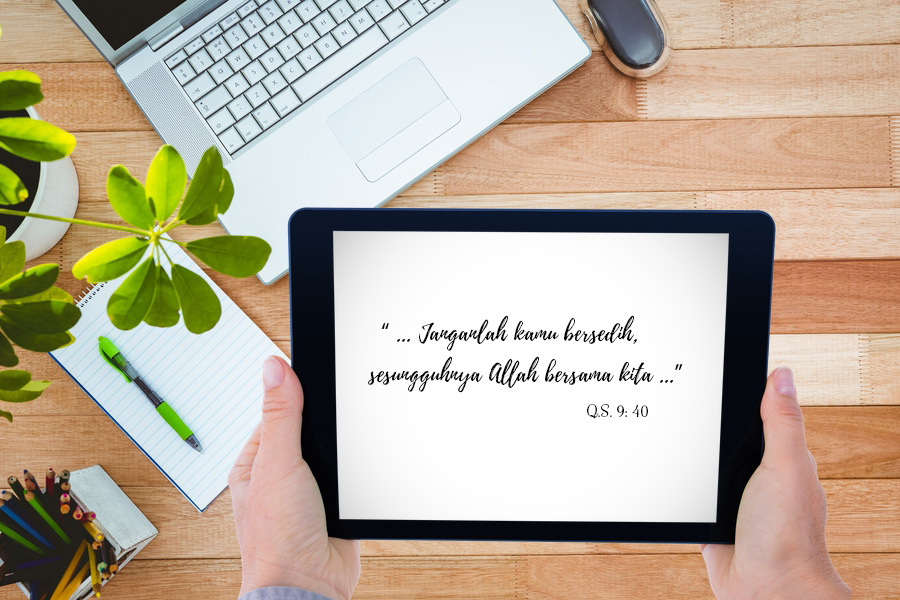 “ ... Janganlah kamu bersedih,
sesungguhnya Allah bersama kita ...”
Q.S. 9: 40